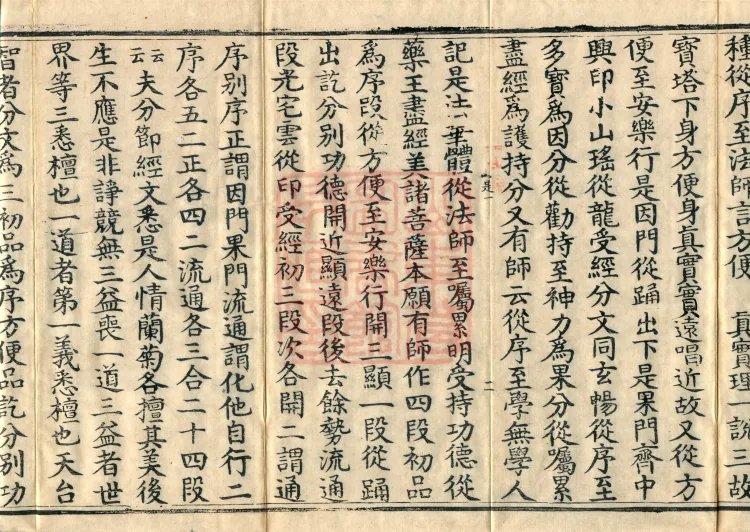 種從序至法師言方便 真實理一說三故
寶塔下身方便身真實實遠唱近故又從方
便至安樂行是因門從踊出下是果門齊中
興印小山瑤從龍受經分文同玄暢從序至
多寶爲因分從勸持至神力爲果分從囑累
盡經爲護持分又有師云從序至學無學人
記是法華體從法師至囑累明受持功德從
藥王盡經美諸菩薩本願有師作四段初品
爲序段從方便至安樂行開三顯一段從踊
出訖分別功德開近顯遠段後去餘勢流通
段光宅雲從印受經初三段次各開二謂通
序別序正謂因門果門流通謂化他自行二
序各五二正各四二流通各三合二十四段
云云夫分節經文悉是人情蘭菊各擅其美後
生不應是非諍競無三益喪一道三益者世
界等三悉檀也一道者第一義悉檀也天台
智者分文爲三初品爲序方便品訖分別功
二